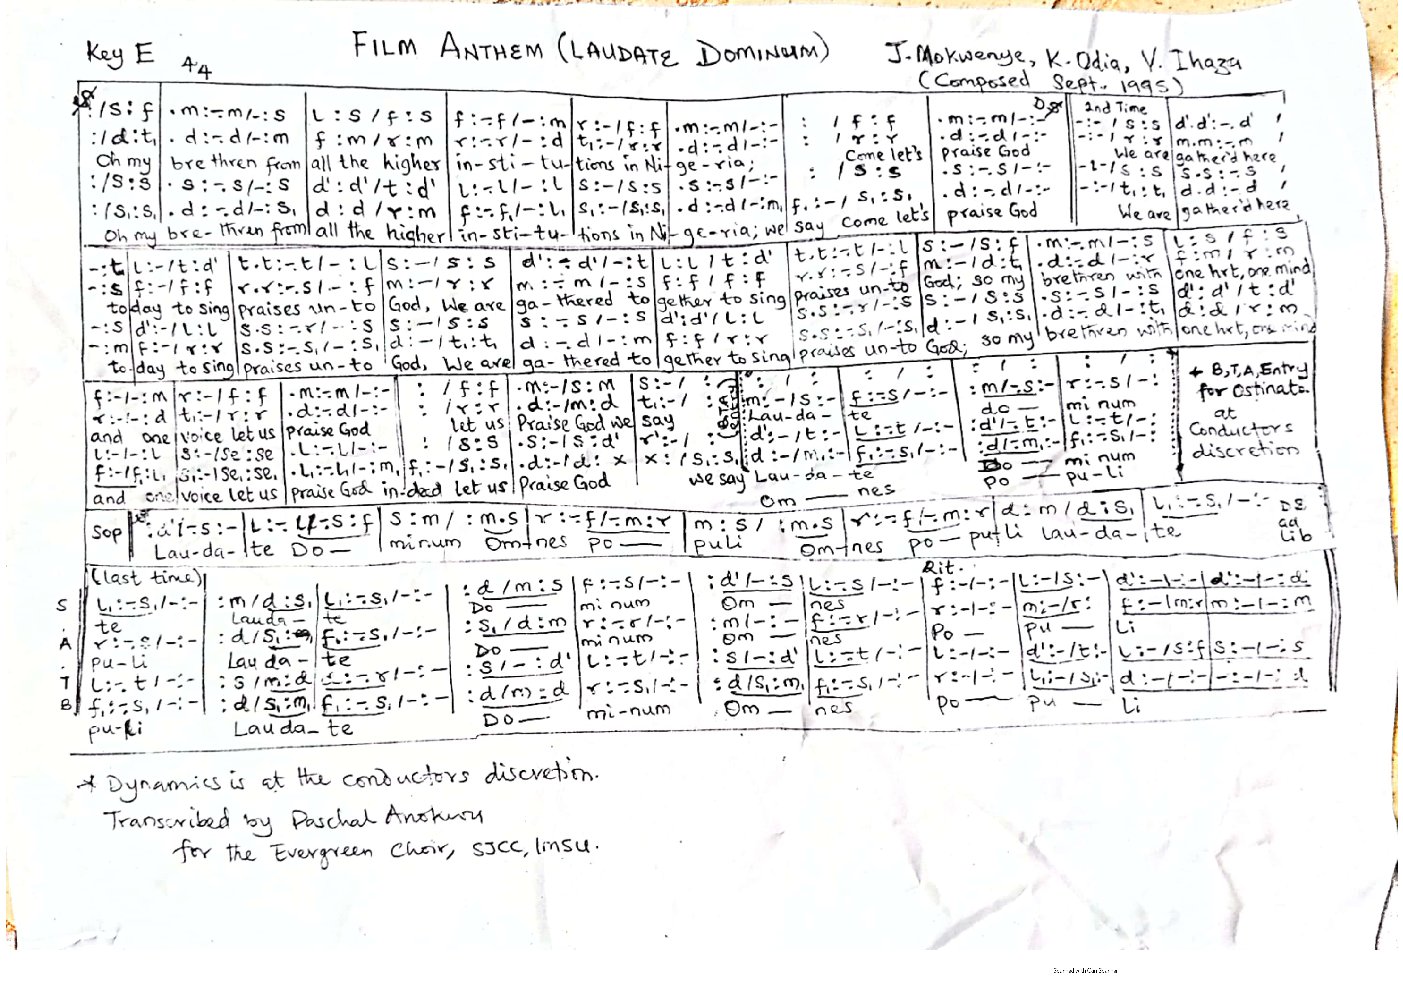 Key E 4/4 FILM ANTHEM (LAUDATE DOMINUM) J. Mokwenye, K. Odia, V. Ihaza
(Composed Sept. 1995)
D.S 2nd Time
:/s:f | .m:-.m/-:s | l:s/f:s | f:-.f/-:m | r:-/f:f | .m:-.m/-:- | : /f:f | .m:-.m/-:- | -:-/s:s | d'.d':-.d'
:/d:t, | .d:-.d/-:m | f:m/r:m | r:-.r/-:d | t,:-/r:r | .d:-.d/-:- | : /r:r | .d:-.d/-:- | -:-/r:r | m.m:-.m
Oh my brethren from all the higher in-sti-tu-tions in Ni-ge-ria; Come let's praise God We are gather'd here
:/s:s | .s:-.s/-:s | d':d'/t:d' | l:-.l/-:l | s:-/s:s | .s:-.s/-:- | : /s:s | .s:-.s/-:- | -:-/s:s | s.s:-.s
:/s,:s, | .d:-.d/-:s, | d:d/r:m | f:-.f,/-:l, | s,:-/s,:s, | .d:-.d/-:m, | f,:-/s,:s, | .d:-.d/-:- | -:-/t,:t, | d.d:-d
Oh my bre-thren from all the higher in-sti-tu-tions in Ni-ge-ria; we say come let's praise God We are gather'd here,
-:t | l:-/t:d' | t.t:-.t/-:l | s:-/s:s | d':-d'/-:t | l:l/t:d' | t.t:-.t/-:l | s:-/s:f | .m:-.m/-:s | l:s/f:s
-:s | f:-/f:f | r.r:-.s/-:f | m:-/r:r | m:-m/-:s | f:f/f:f | r.r:-s/-:f | m:-/d:t, | .d:-.d/-:r | f:m/r:m
today to sing praises un-to God, We are ga-thered to gether to sing praises un-to God; so my brethren with one hrt, one mind
-:s | d':-/l:l | s.s:-.r/-:s | s:-/s:s | s:-s/-:s | d':d'/l:l | s.s:-.r/-:s | s:-/s:s | .s:-.s/-:s | d':d'/t:d'
-:m | f:-/r:r | s.s:-.s,/-:s, | d:-/t,:t, | d:-d/-:m | f:f/r:r | s.s:-.s,/-:s, | d:-/s,:s, | .d:-.d/-:t, | d:d/r:m
to-day to sing praises un-to God, We are ga-thered to gether to sing praises un-to God; so my brethren with one hrt, one mind
f:-/-:m | r:-/f:f | .m:-m/-:- | : /f:f | .m:-/s:m | s:-/ : | : / : | : / : | : / : | : / :
r:-/-:d | t,:-/r:r | .d:-.d/-:- | : /r:r | .d:-/m:d | t,:-/ : | m:-/s:- | f:-s/-:- | :m/-s:- | r:-s/-:-
and one voice let us praise God let us Praise God we say Lau-da-te do— minum
l:-/-:l | s:-/se:se | .l:-.l/-:- | : /s:s | .s:-/s:d' | r':-/ : | d':-/t:- | l:-t/-:- | :d'/-t:- | l:-t/-:-
f:-/f,:l, | s,:-/se,:se, | .l,:-.l,/-:m, | f,:-/s,:s, | .d:-/d:x | x:/s,:s, | d:-/m:- | f,:-s,/-:- | :d/-m:- | f,:-s,/-:-
and one voice let us praise God in-deed let us Praise God we say Lau-da-te Do— minum
Om— nes po— pu-li
+ B,T,A, Entry
for Ostinato.
at
Conductors
discretion
Sop | :d'/-s:- | l:-s:f | s:m/:m.s | r:-f/-m:r | m:s/:m.s | r:-f/-m:r | d:m/d:s, | l,:-s,/-:- DS ad lib
Lau-da-te Do— minum Om-nes po— puli Om-nes po— pu-li lau-da-te
(last time) Rit.
S l,:-s,/-:- | :m/d:s, | l,:-s,/-:- | :d/m:s | f:-s/-:- | :d'/-:s | l:-s/-:- | f:-/-:- | l:-/s:- | d':-/-:- | d':-/-:d'
te Lauda-te Do— minum Om— nes
A r:-s/-:- | :d/s,:m | f,:-s,/-:- | :s,/d:m | r:-r/-:- | :m/-:- | f:-r/-:- | r:-/-:- | m:-/r: | f:-/m:r | m:-/-:m
pu-li Lau da-te Do— minum Om— nes Po— Pu— Li
T l:-t/-:- | :s/m:d | r:-r/-:- | :s/-:d' | l:-t/-:- | :s/-:d' | l:-t/-:- | l:-/-:- | d':-/t:- | l:-/s:f | s:-/-:s
B f,:-s,/-:- | :d/s,:m, | f,:-s,/-:- | :d/m:d | r:-s,/-:- | :d/s,:m, | f,:-s,/-:- | r:-/-:- | l,:-/s,:- | d:-/-:- | -:-/-:d
pu-li Lauda-te Do— mi-num Om— nes Po— Pu— li
* Dynamics is at the conductors discretion.
Transcribed by Paschal Anokwuu
for the Evergreen Choir, SJCC, IMSU.
Scanned with CamScanner